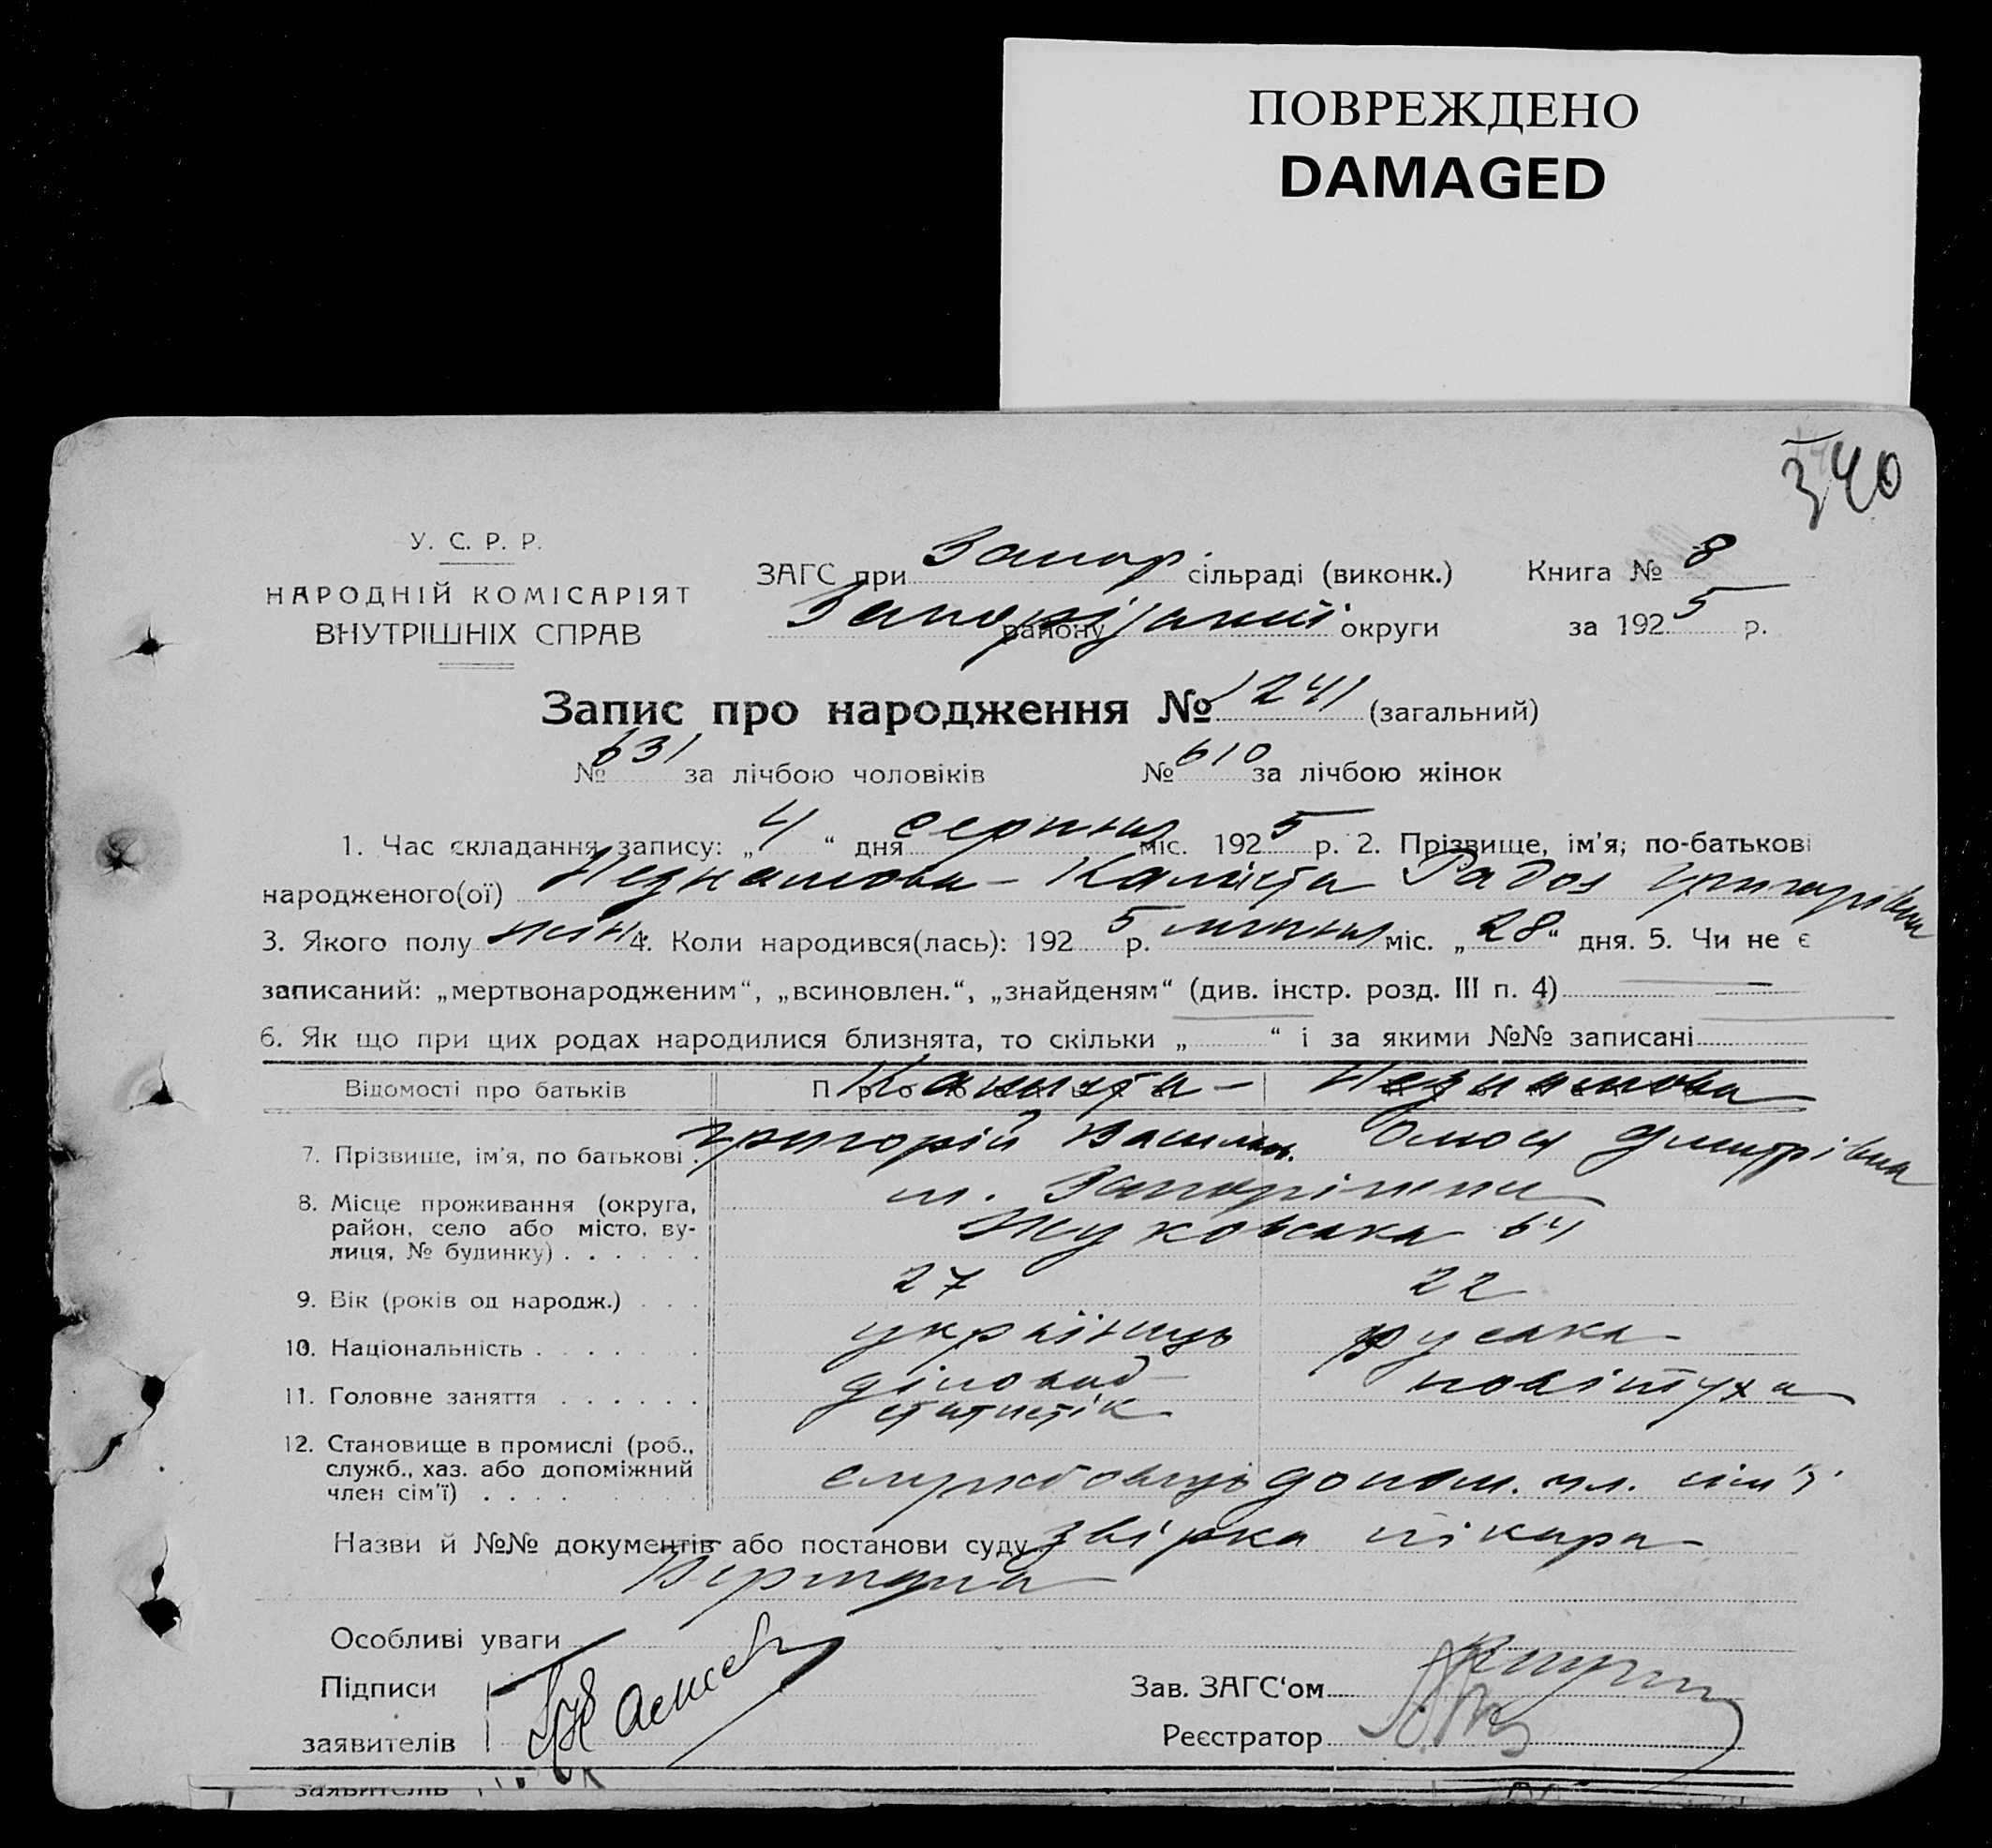 ПОВРЕЖДЕНО
DAMAGED
340
У. С. Р. Р.
НАРОДНІЙ КОМІСАРІЯТ
ВНУТРІШНІХ СПРАВ
ЗАГС при Запор сільраді (виконк.) Книга № 8
району Запоріжської округи за 1925 р.
Запис про народження № 1241 (загальний)
№ 631 за лічбою чоловіків № 610 за лічбою жінок
1. Час складання запису: „4“ дня серпня міс. 1925 р. 2. Прізвище, ім'я, по-батькові
народженого(ої) Григорівна
3. Якого полу жін 4. Коли народився(лась): 1925 р. липня міс. „28“ дня. 5. Чи не є
записаний: „мертвонародженим“, „всиновлен.“, „знайденям“ (див. інстр. розд. III п. 4)
6. Як що при цих родах народилися близнята, то скільки „ “ і за якими №№ записані
Відомості про батьків
7. Прізвище, ім'я, по батькові . Григорій Васильов. Дмитрівна
8. Місце проживання (округа, м. Запоріжжя
район, село або місто, ву- Жуковська 64
лиця, № будинку) . . . . . .
9. Вік (років од народж.) . . . 27 22
10. Національність . . . . . . . українець руська
11. Головне заняття . . . . . . діловод- повітуха
статистік
12. Становище в промислі (роб.,
служб., хаз. або допоміжний
член сім'ї) . . . . службовець допом. чл. сім'ї
Назви й №№ документів або постанови суду лікаря
Особливі уваги
Підписи Зав. ЗАГС‘ом
заявителів Реєстратор
заявителів